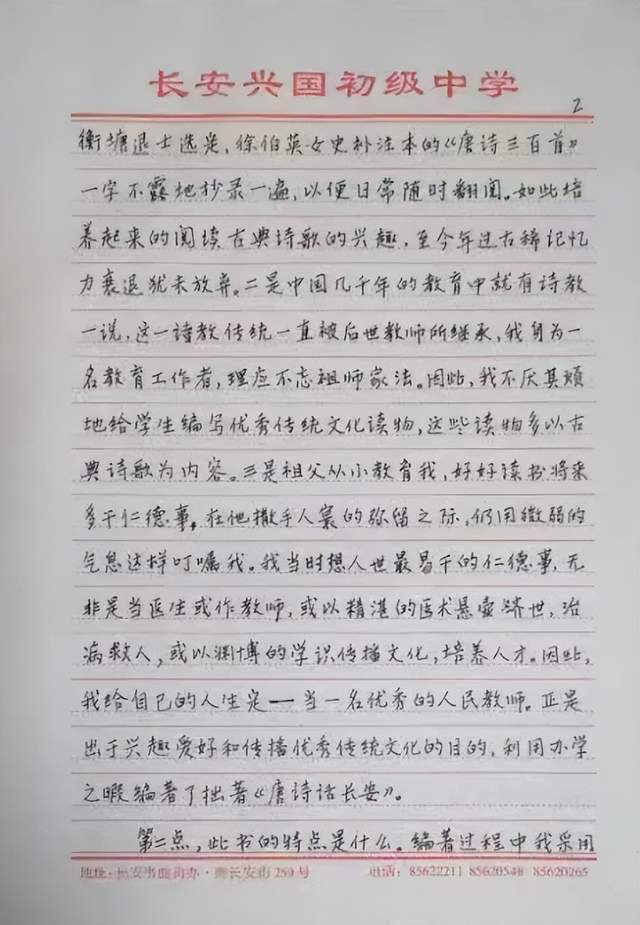 长安兴国初级中学
2
衡塘退士选定,徐伯英女史补注本的《唐诗三百首》
一字不露地抄录一遍,以便日常随时翻阅。如此培
养起来的阅读古典诗歌的兴趣,至今年过古稀记忆
力衰退犹未放弃。二是中国几千年的教育中就有诗教
一说,这一诗教传统一直被后世教师所继承,我身为一
名教育工作者,理应不忘祖师家法。因此,我不厌其烦
地给学生编写优秀传统文化读物,这些读物多以古
典诗歌为内容。三是祖父从小教育我,好好读书将来
多干仁德事。在他撒手人寰的弥留之际,仍用微弱的
气息这样叮嘱我。我当时想人世最易干的仁德事,无
非是当医生或作教师,或以精湛的医术悬壶济世,治
病救人,或以渊博的学识传播文化,培养人才。因此,
我给自己的人生定——当一名优秀的人民教师。正是
出于兴趣爱好和传播优秀传统文化的目的,利用办学
之暇编著了拙著《唐诗话长安》。
第二点,此书的特点是什么。编著过程中我采用
地址:长安韦曲街办·南长安街259号 电话:85622211 85620548 85620265